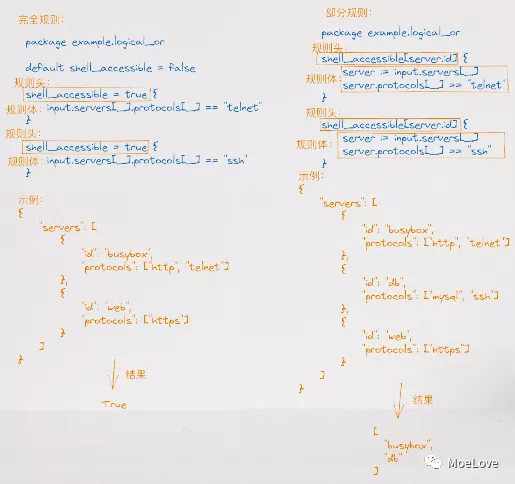 完全规则:
package example.logical_or
default shell_accessible = false
规则头:
shell_accessible = true {
规则体: input.servers[_].protocols[_] == "telnet"
}
规则头:
shell_accessible = true {
规则体: input.servers[_].protocols[_] == "ssh"
}
示例:
{
"servers": [
{
"id": "busybox",
"protocols": ["http", "telnet"]
},
{
"id": "web",
"protocols": ["https"]
}
]
}
结果
True
部分规则:
package example.logical_or
规则头:
shell_accessible[server.id] {
规则体: server := input.servers[_]
server.protocols[_] == "telnet"
}
规则头:
shell_accessible[server.id] {
规则体: server := input.servers[_]
server.protocols[_] == "ssh"
}
示例:
{
"servers": [
{
"id": "busybox",
"protocols": ["http", "telnet"]
},
{
"id": "db",
"protocols": ["mysql", "ssh"]
},
{
"id": "web",
"protocols": ["https"]
}
]
}
结果
[
"busybox",
"db"
]
MoeLove